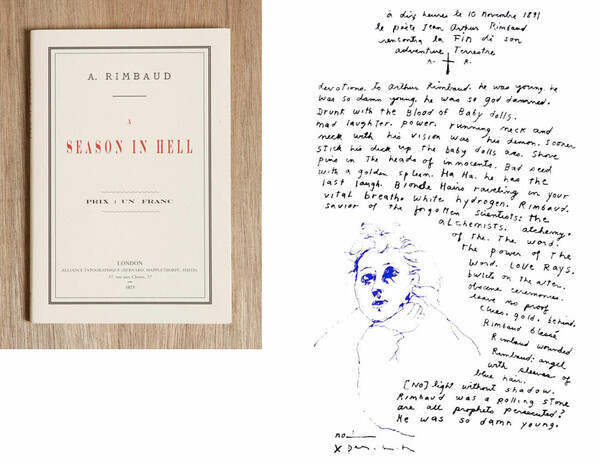 A. RIMBAUD
A
SEASON IN HELL
PRIX : UN FRANC
LONDON
ALLIANCE TYPOGRAPHIQUE (BERNARD, MAPPLETHORPE, SMITH)
37, rue aux Choux, 37
1873
à dix heures le 10 novembre 1891
le poète Jean Arthur Rimbaud
rencontra la Fin de son
adventure Terrestre
A. R.
devotions to Arthur Rimbaud. he was young. he
was so damn young. he was so god damned.
Drunk with the Blood of Baby dolls.
mad laughter. power. running neck and
neck with his vision was his demon. sooner
stick his dick up the baby dolls ass. Shove
pins in the heads of innocents. Bad seed
with a golden spleen. Ha Ha. he has the
last laugh. Blonde Hairs raveling in your
vital breath. white hydrogen. Rimbaud.
savior of the forgotten scientists: the
alchemists. alchemy.
of the. The word.
the power of The
Word. LOVE RAYS.
bullets on the alter.
obscene ceremonies.
leave no proof
clues. gold. behind.
Rimbaud Blessé
Rimbaud wounded
Rimbaud: angel
with sleeves of
blue hair.
[NO] light without shadow.
Rimbaud was a Rolling Stone
are all prophets persecuted?
He was so damn young.
no
X